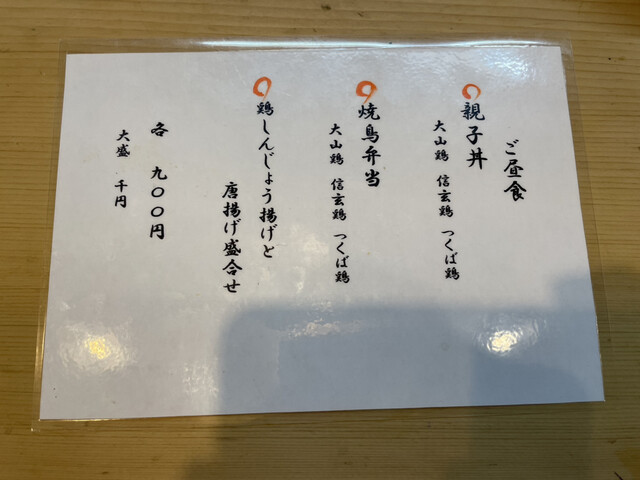 ご昼食
親子丼
大山鶏 信玄鶏 つくば鶏
焼鳥弁当
大山鶏 信玄鶏 つくば鶏
鶏しんじょう揚げと
唐揚げ盛合せ
各 九〇〇円
大盛 千円